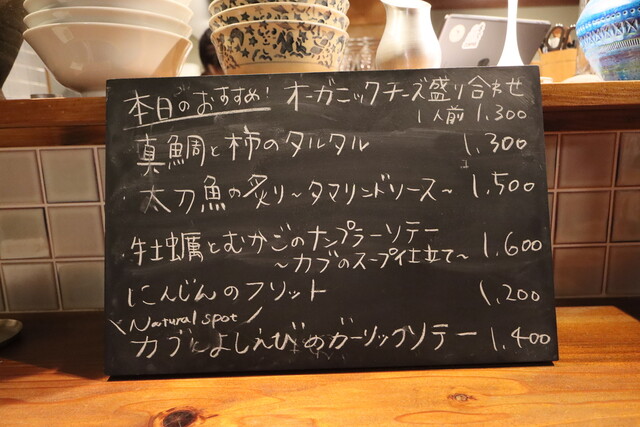 本日のおすすめ! オーガニックチーズ盛り合わせ
1人前 1,300
真鯛と柿のタルタル 1,300
・太刀魚の炙り~タマリンドソース~ 1,500
・牡蠣とむかごのナンプラーソテー 1,600
~カブのスープ仕立て~
にんじんのフリット 1,200
\Natural spot/
カブとよしえびのガーリックソテー 1,400